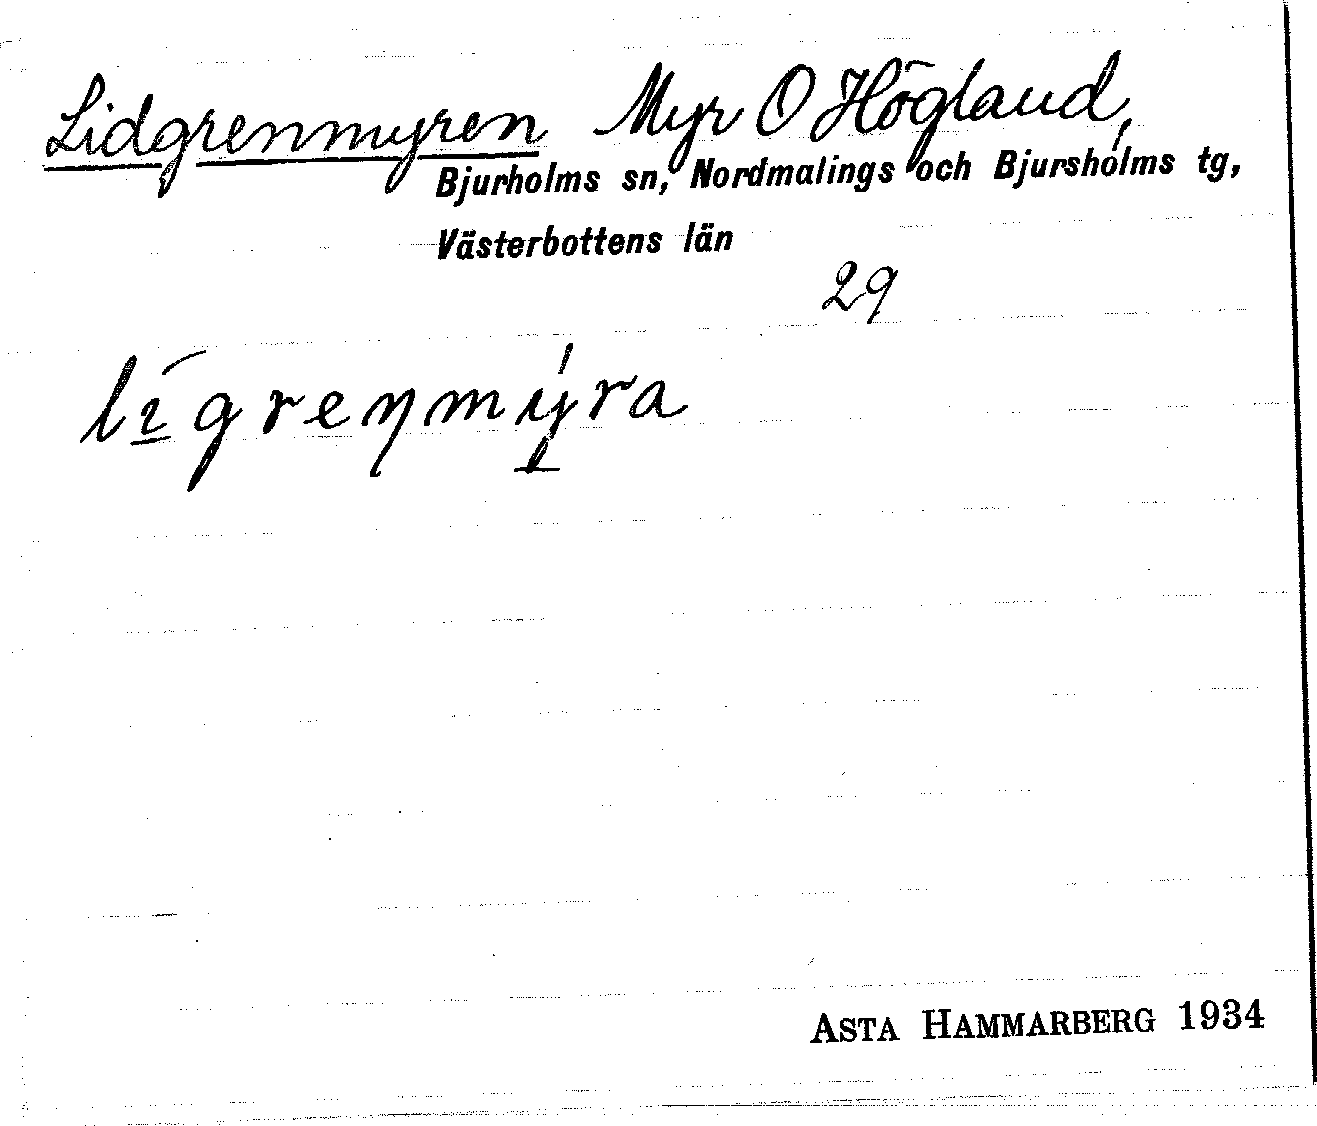 Lidgrenmyren Myr O Högland,
Bjurholms sn, Nordmalings och Bjursholms tg,
Västerbottens län
29
lígrenmýra
ASTA HAMMARBERG 1934